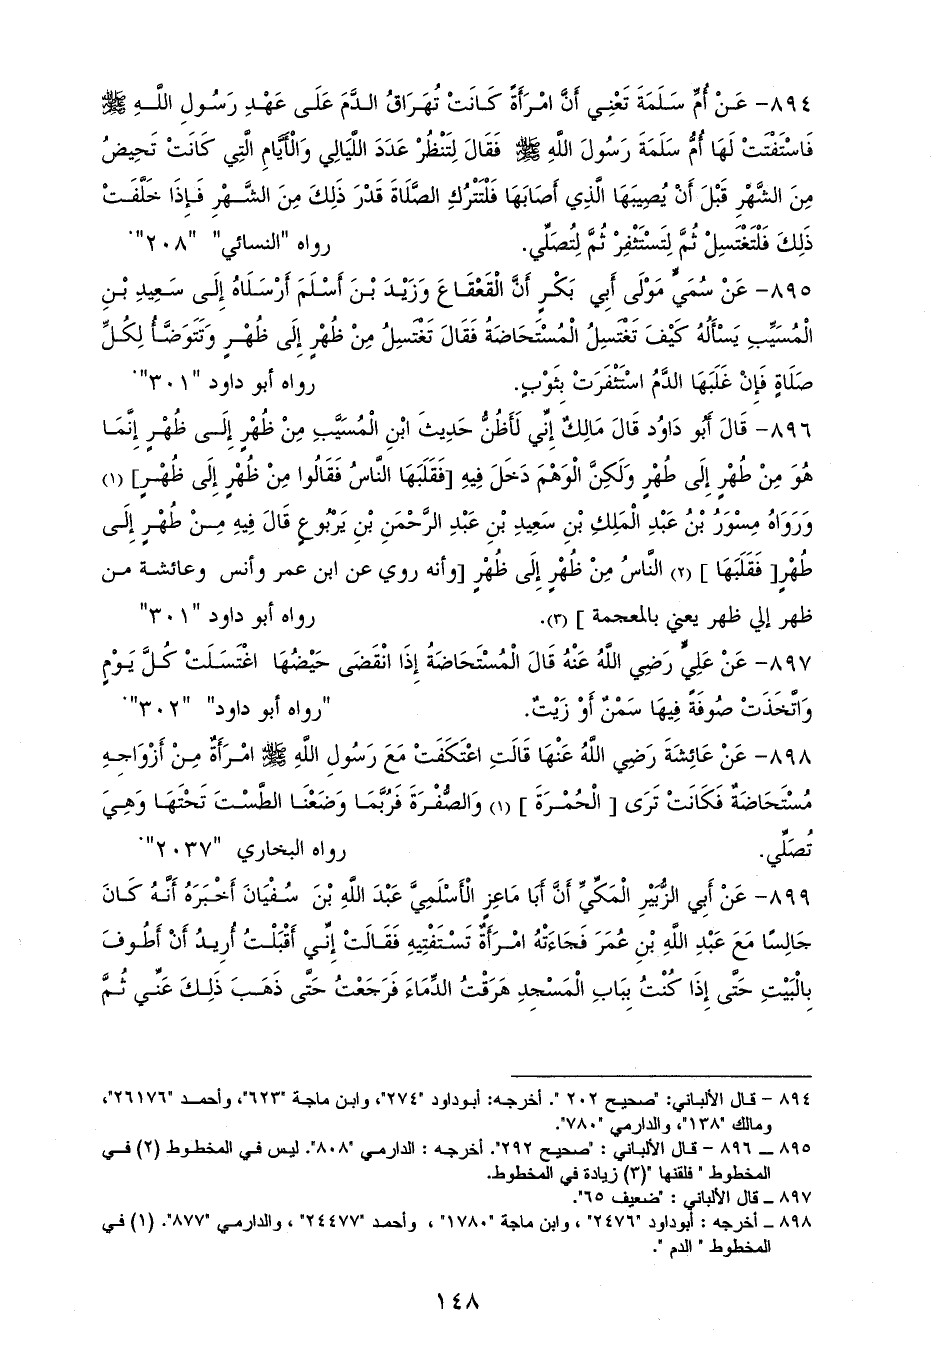 ٨٩٤- عَنْ أُمِّ سَلَمَةَ تَعْنِي أَنَّ امْرَأَةً كَانَتْ تُهَرَاقُ الدَّمَ عَلَى عَهْدِ رَسُولِ اللَّهِ ﷺ
فَاسْتَفْتَتْ لَهَا أُمُّ سَلَمَةَ رَسُولَ اللَّهِ ﷺ فَقَالَ لِتَنْظُرْ عَدَدَ اللَّيَالِي وَالْأَيَّامِ الَّتِي كَانَتْ تَحِيضُ
مِنَ الشَّهْرِ قَبْلَ أَنْ يُصِيبَهَا الَّذِي أَصَابَهَا فَلْتَتْرُكِ الصَّلَاةَ قَدْرَ ذَلِكَ مِنَ الشَّهْرِ فَإِذَا خَلَّفَتْ
ذَلِكَ فَلْتَغْتَسِلْ ثُمَّ لِتَسْتَثْفِرْ ثُمَّ لِتُصَلِّي. رواه "النسائي" "٢٠٨".
٨٩٥- عَنْ سُمَيٍّ مَوْلَى أَبِي بَكْرٍ أَنَّ الْقَعْقَاعَ وَزَيْدَ بْنَ أَسْلَمَ أَرْسَلَاهُ إِلَى سَعِيدِ بْنِ
الْمُسَيِّبِ يَسْأَلُهُ كَيْفَ تَغْتَسِلُ الْمُسْتَحَاضَةُ فَقَالَ تَغْتَسِلُ مِنْ ظُهْرٍ إِلَى ظُهْرٍ وَتَتَوَضَّأُ لِكُلِّ
صَلَاةٍ فَإِنْ غَلَبَهَا الدَّمُ اسْتَثْفَرَتْ بِثَوْبٍ. رواه أبو داود "٣٠١".
٨٩٦- قَالَ أَبُو دَاوُد قَالَ مَالِكٌ إِنِّي لَأَظُنُّ حَدِيثَ ابْنِ الْمُسَيَّبِ مِنْ ظُهْرٍ إِلَى ظُهْرٍ إِنَّمَا
هُوَ مِنْ طُهْرٍ إِلَى طُهْرٍ وَلَكِنَّ الْوَهْمَ دَخَلَ فِيهِ [فَقَلَبَهَا النَّاسُ فَقَالُوا مِنْ ظُهْرٍ إِلَى ظُهْرٍ] (١)
وَرَوَاهُ مِسْوَرُ بْنُ عَبْدِ الْمَلِكِ بْنِ سَعِيدِ بْنِ عَبْدِ الرَّحْمَنِ بْنِ يَرْبُوعٍ قَالَ فِيهِ مِنْ طُهْرٍ إِلَى
طُهْرٍ[ فَقَلَبَهَا ] (٢) النَّاسُ مِنْ ظُهْرٍ إِلَى ظُهْرٍ [وأنه روي عن ابن عمر وأنس وعائشة من
ظهر إلي ظهر يعني بالمعجمة ] (٣). رواه أبو داود "٣٠١"
٨٩٧- عَنْ عَلِيٍّ رَضِي اللَّهُ عَنْهُ قَالَ الْمُسْتَحَاضَةُ إِذَا انْقَضَى حَيْضُهَا اغْتَسَلَتْ كُلَّ يَوْمٍ
وَاتَّخَذَتْ صُوفَةً فِيهَا سَمْنٌ أَوْ زَيْتٌ. "رواه أبو داود" "٣٠٢".
٨٩٨- عَنْ عَائِشَةَ رَضِي اللَّهُ عَنْهَا قَالَتِ اعْتَكَفَتْ مَعَ رَسُولِ اللَّهِ ﷺ امْرَأَةٌ مِنْ أَزْوَاجِهِ
مُسْتَحَاضَةٌ فَكَانَتْ تَرَى [ الْحُمْرَةَ ] (١) وَالصُّفْرَةَ فَرُبَّمَا وَضَعْنَا الطَّسْتَ تَحْتَهَا وَهِيَ
تُصَلِّي. رواه البخاري "٢٠٣٧".
٨٩٩- عَنْ أَبِي الزُّبَيْرِ الْمَكِّيِّ أَنَّ أَبَا مَاعِزٍ الْأَسْلَمِيَّ عَبْدَ اللَّهِ بْنَ سُفْيَانَ أَخْبَرَهُ أَنَّهُ كَانَ
جَالِسًا مَعَ عَبْدِ اللَّهِ بْنِ عُمَرَ فَجَاءَتْهُ امْرَأَةٌ تَسْتَفْتِيهِ فَقَالَتْ إِنِّي أَقْبَلْتُ أُرِيدُ أَنْ أَطُوفَ
بِالْبَيْتِ حَتَّى إِذَا كُنْتُ بِبَابِ الْمَسْجِدِ هَرَقْتُ الدِّمَاءَ فَرَجَعْتُ حَتَّى ذَهَبَ ذَلِكَ عَنِّي ثُمَّ
٨٩٤ - قال الألباني: "صحيح ٢٠٢ ". أخرجه: أبوداود "٢٧٤"، وابن ماجة "٦٢٣"، وأحمد "٢٦١٧٦"،
ومالك "١٣٨"، والدارمي "٧٨٠".
٨٩٥ ــ ٨٩٦ - قال الألباني : "صحيح ٢٩٢". أخرجه : الدارمي "٨٠٨". ليس في المخطوط (٢) في
المخطوط " فلقنها "(٣) زيادة في المخطوط.
٨٩٧ ـ قال الألباني : "ضعيف ٦٥".
٨٩٨ ـ أخرجه : أبوداود "٢٤٧٦" ، وابن ماجة "١٧٨٠" ، وأحمد "٢٤٤٧٧" ، والدارمي "٨٧٧". (١) في
المخطوط " الدم ".
١٤٨